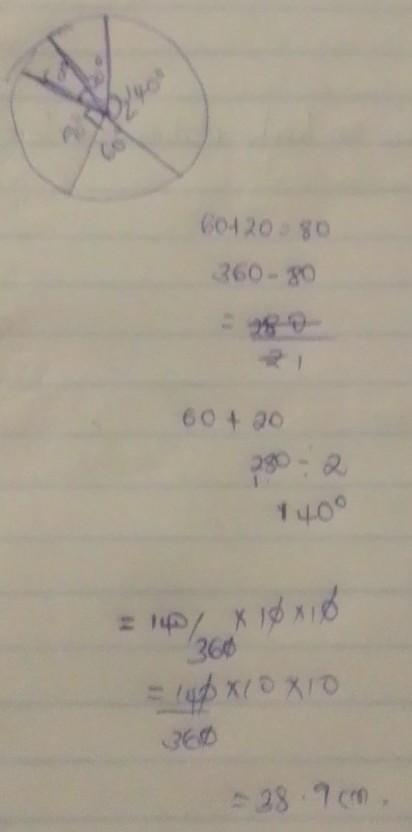 140°
60
60+20=80
360-80
= 280
2 1
60 + 20
280 ÷ 2
140°
= 140/360 × 10 × 10
= 140 × 10 × 10
360
= 38.9cm.